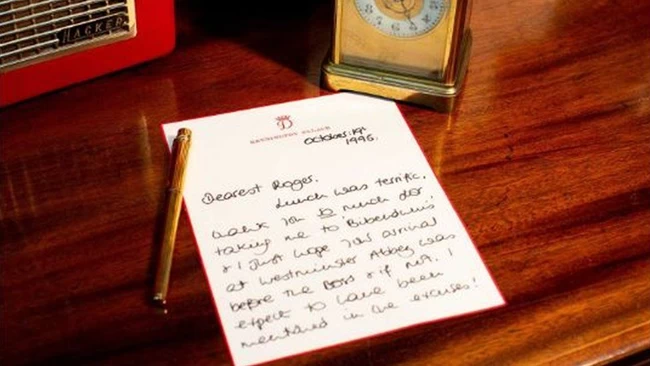 HACKER
D
KENSINGTON PALACE
October. 1st
1996.
Dearest Roger.
Lunch was terrific,
thank you so much for
taking me to 'Bibendums'
& I just hope your arrival
at Westminster Abbey was
before the Boss & if not, I
expect to have been
mentioned in the excuses!